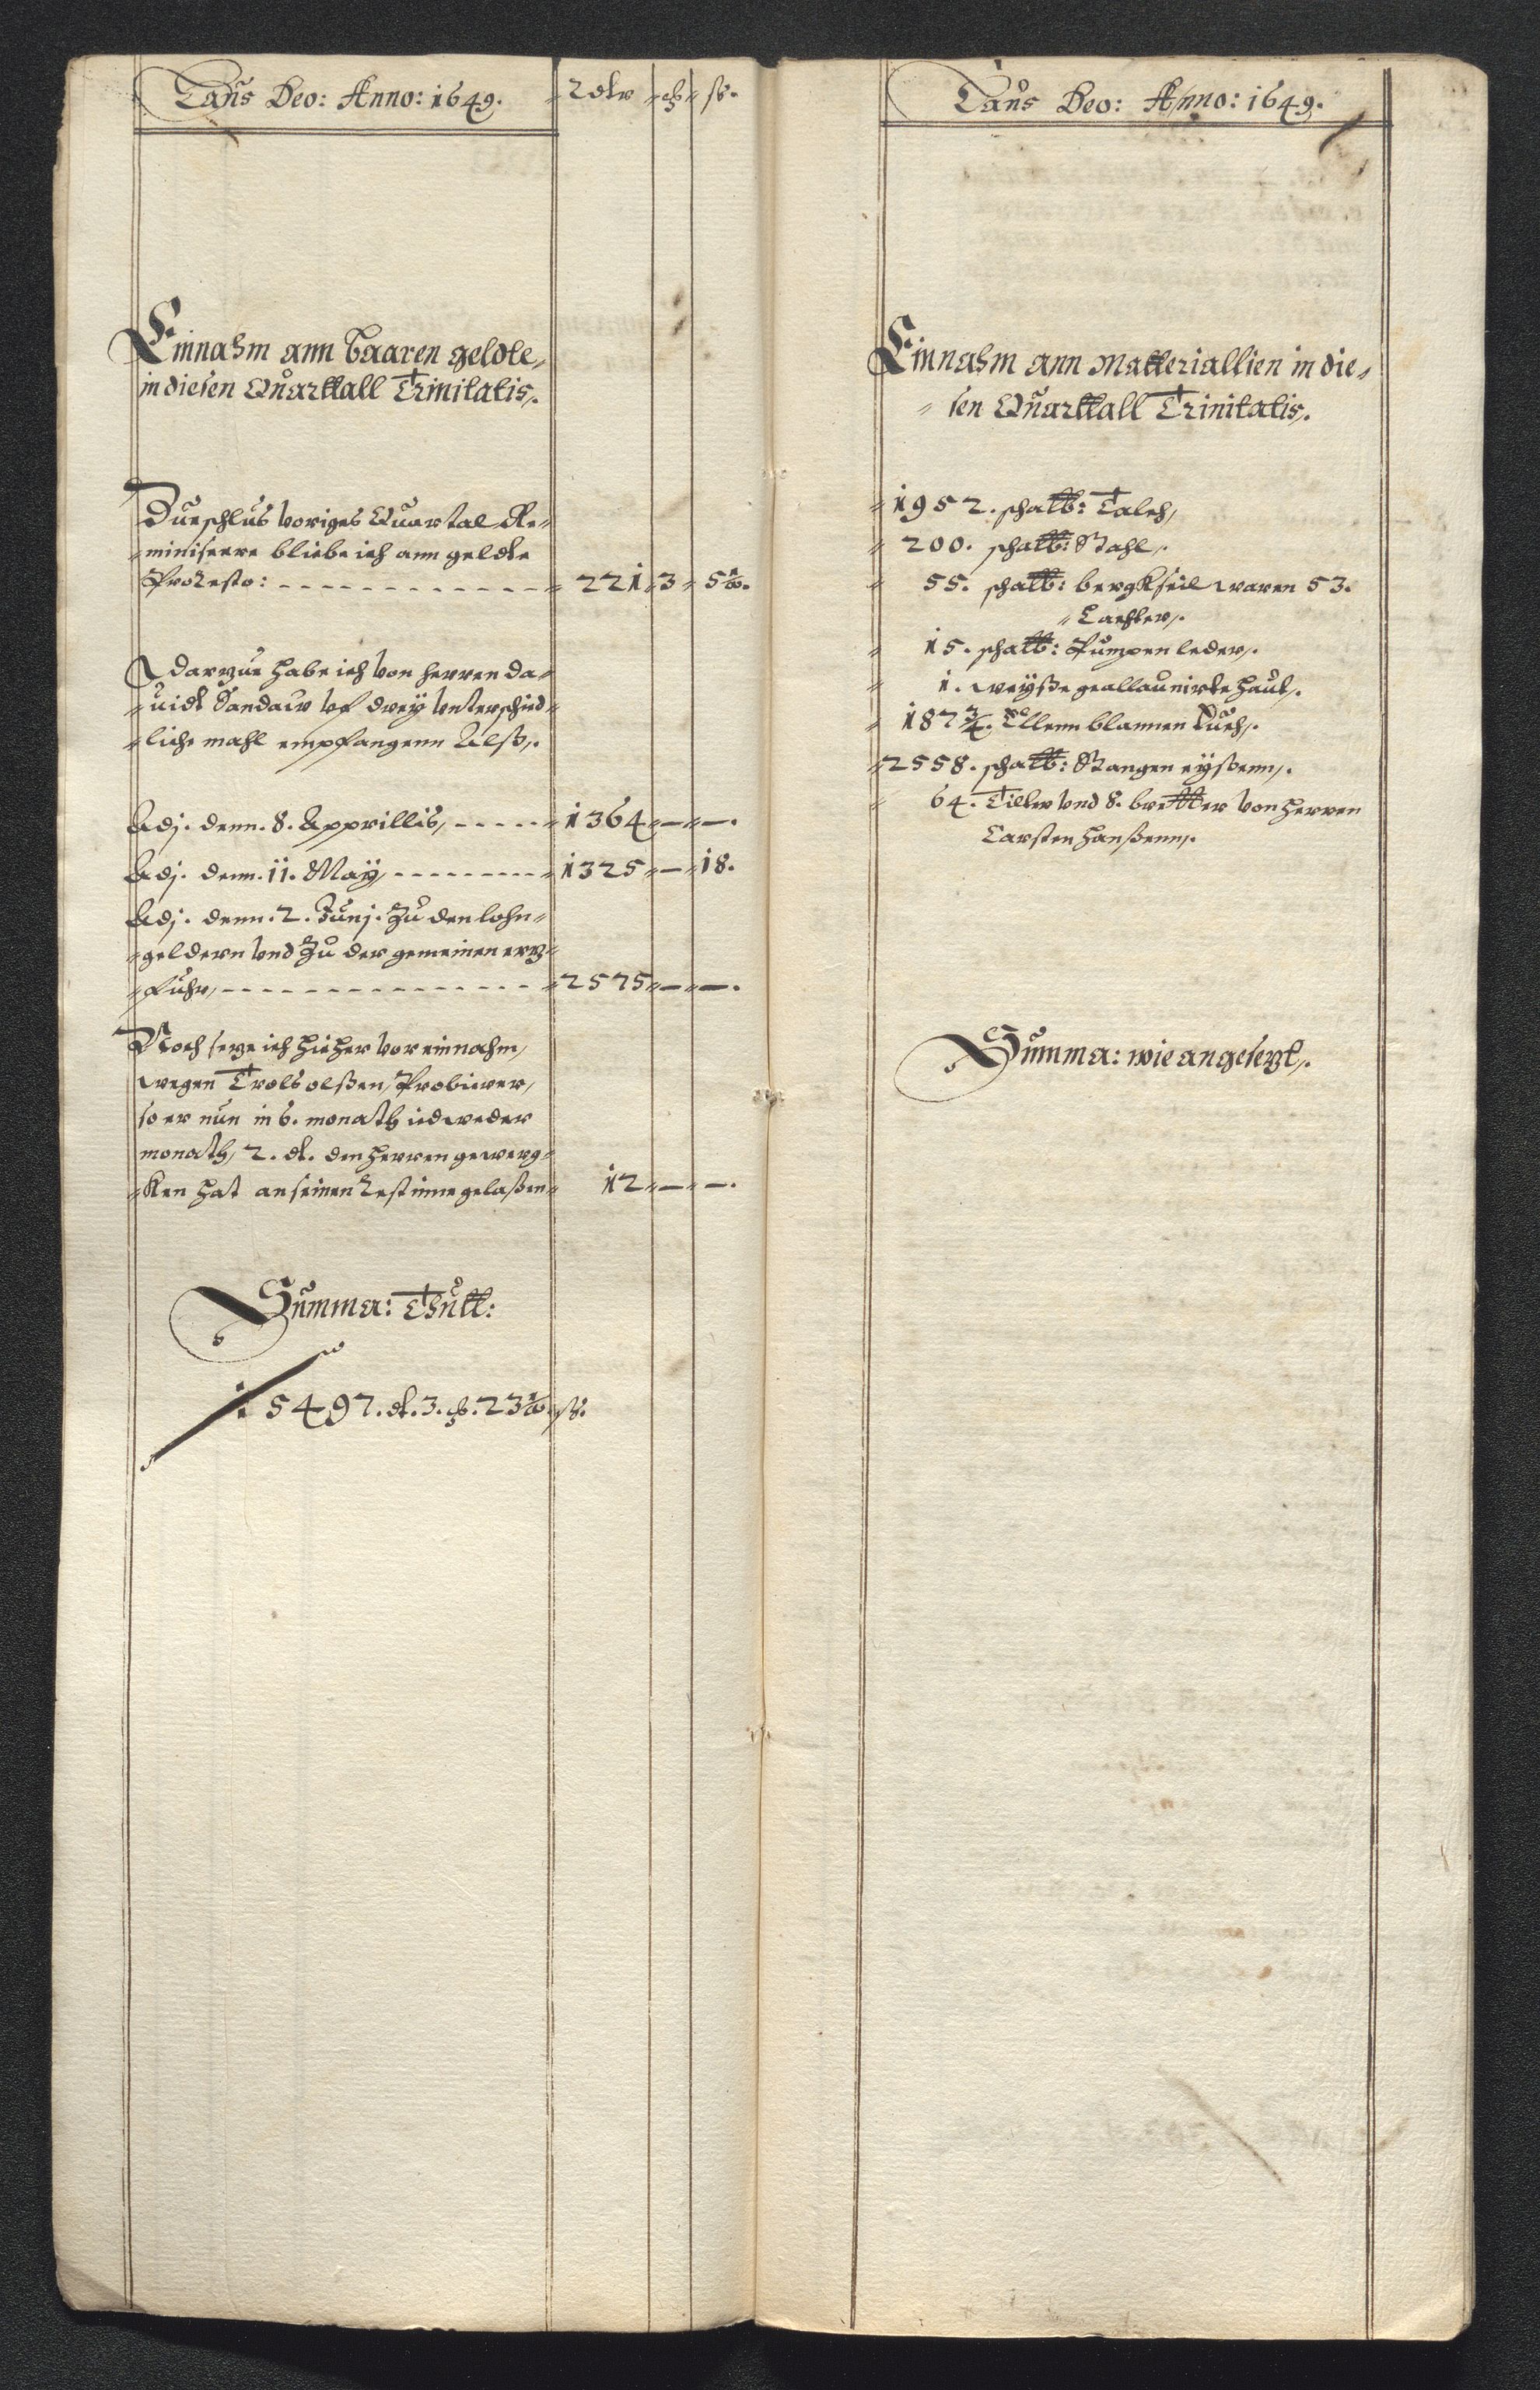 Laus Deo: Anno: 1649. Rdlr ȹ ß.
Einnahm ann baaren geldte,
in diesen Quarttall Trinitatis,.
Zue schlus voriges Quartal Re-
miniscere bliebe ich ann geldte
Pro Resto: - - - 221 3 5 1/10.
Darzue habe ich von Herren Da-
uidt Sandaw vf drey vnterschied-
liche mahl empfangenn Alß,.
Adj. denn. 8. Apprillis, - - - 1364 — —.
Adj. denn. 11. May, - - - 1325 — 18.
Adj. denn. 2. Junj. Zu den lohn-
geldern vnd Zu der gemeinen ertz-
fuhr, - - - 2575 — —.
Noch setze ich hieher vor einnahm,
wegen Trols olßen, Probierer,
so er nun in 6. monath iedweder
monath, 2. dl. den Herren gewerg-
ken hat an seinen Rest inne gelaßen 12 — —.
Summa: Thutt:
5497. dl. 3. ȹ. 23 1/10. ß.
Laus Deo: Anno: 1649.
Einnahm ann Matteriallien in die-
sen Quarttall Trinitatis,.
1952. schattt: Talch,
200. schattt: Stahl,.
55. schattt: bergkseil waren 53.
Lachter,.
15. schattt: Pumpen leder,.
1. weyße geallaunirte haut,.
187 3/4. Ellenn blauuen Tuch,.
2558. schattt: Stangen eyßenn,.
64. Tiller vnd 8. bretter von Herren
Carsten Hanßenn,.
Summa: wie angesetzt,.